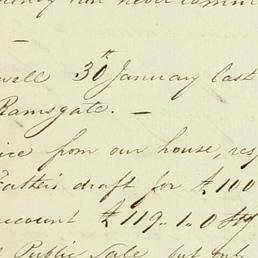 never comm
well 30th January last
Ramsgate. —
ice from our house, res
Father's draft for £100
account £119..1..0 Stg
Public Sale, but only